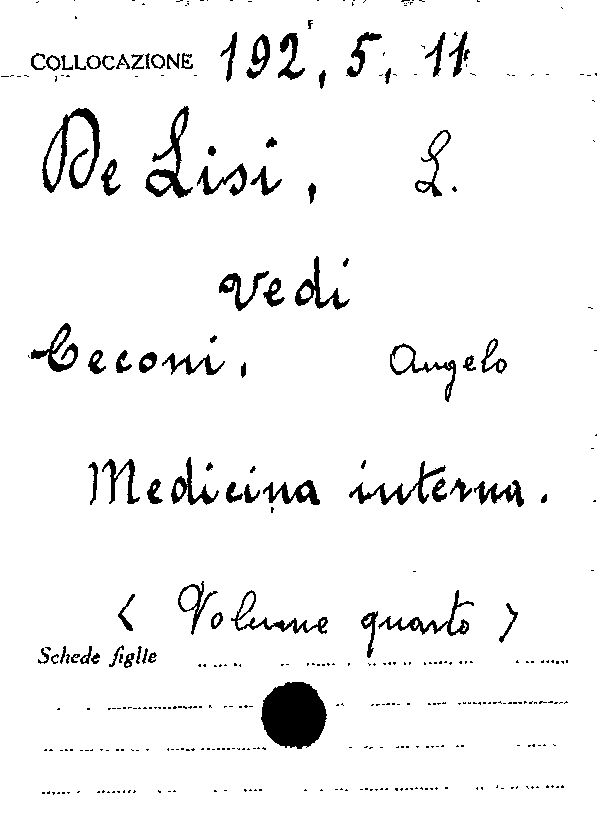 COLLOCAZIONE 192, 5, 11
De Lisi, L.
vedi
Ceconi, Angelo
Medicina interna.
< Volume quarto >
Schede figlie